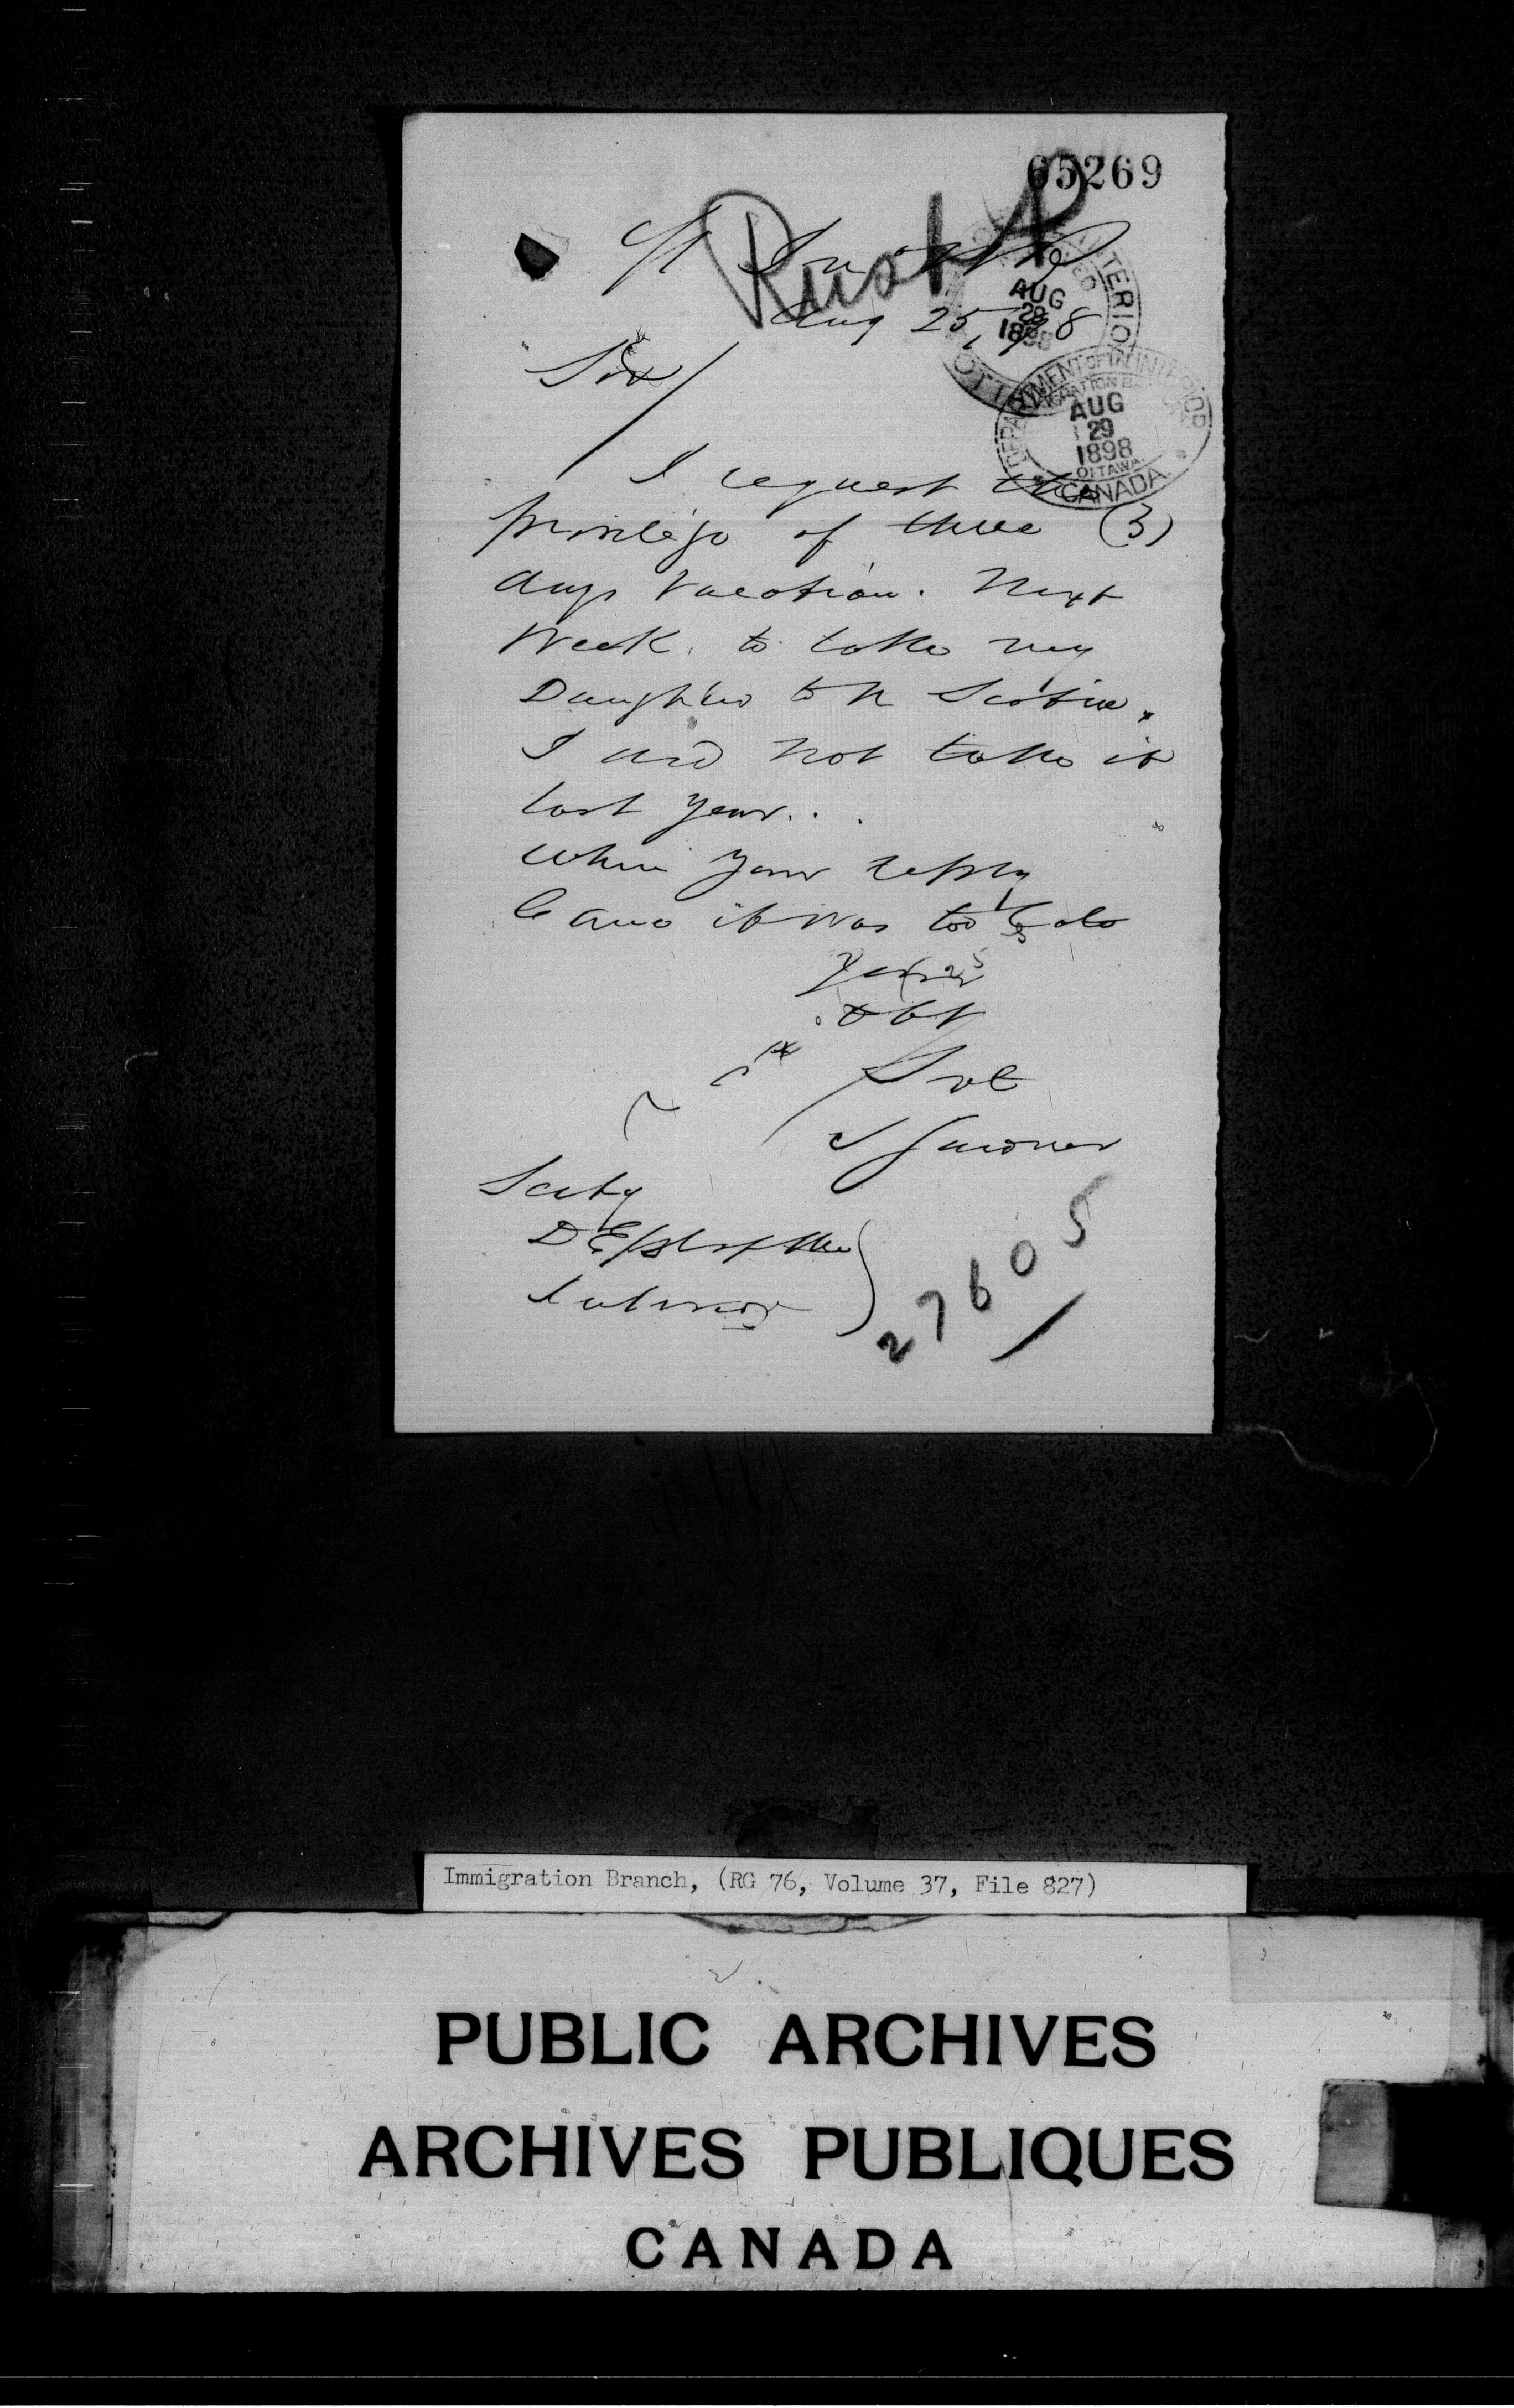 65269
Rust
St
Aug 25, 98
AUG
1898
INTERIOR
DEPARTMENT OF THE INTERIOR
AUG
29
1898
OTTAWA
CANADA
Sir/
I request the
privilege of three (3)
days vacation. Next
Week. to take my
Daughter to N Scotia.
I did not take it
last year..
When your reply
Came it was too late
Yours
Obt
Svt
S Gardner
Secty
Dept of the
Interior
27605
Immigration Branch, (RG 76, Volume 37, File 827)
PUBLIC ARCHIVES
ARCHIVES PUBLIQUES
CANADA